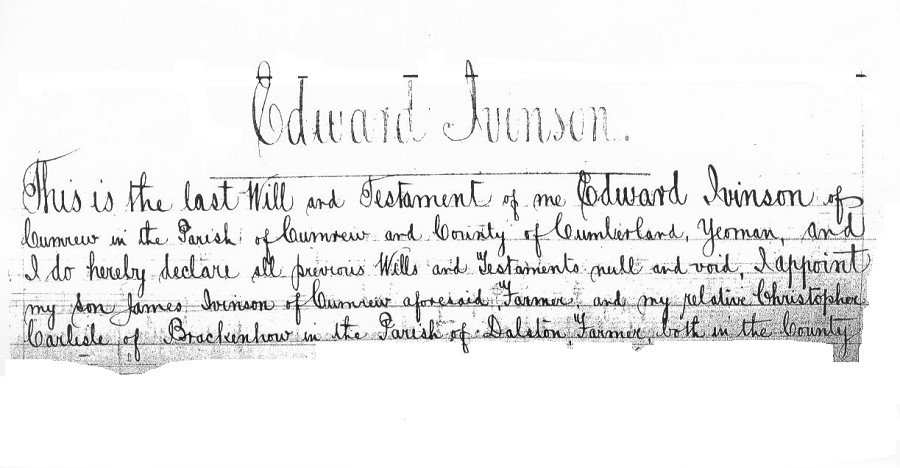 Edward Ivinson.
This is the last Will and Testament of me Edward Ivinson of
Cumrew in the Parish of Cumrew and County of Cumberland, Yeoman, and
I do hereby declare all previous Wills and Testaments null and void, I appoint
my son James Ivinson of Cumrew aforesaid, Farmer, and my relative Christopher
Carlisle of Brackenhow in the Parish of Dalston, Farmer, both in the County